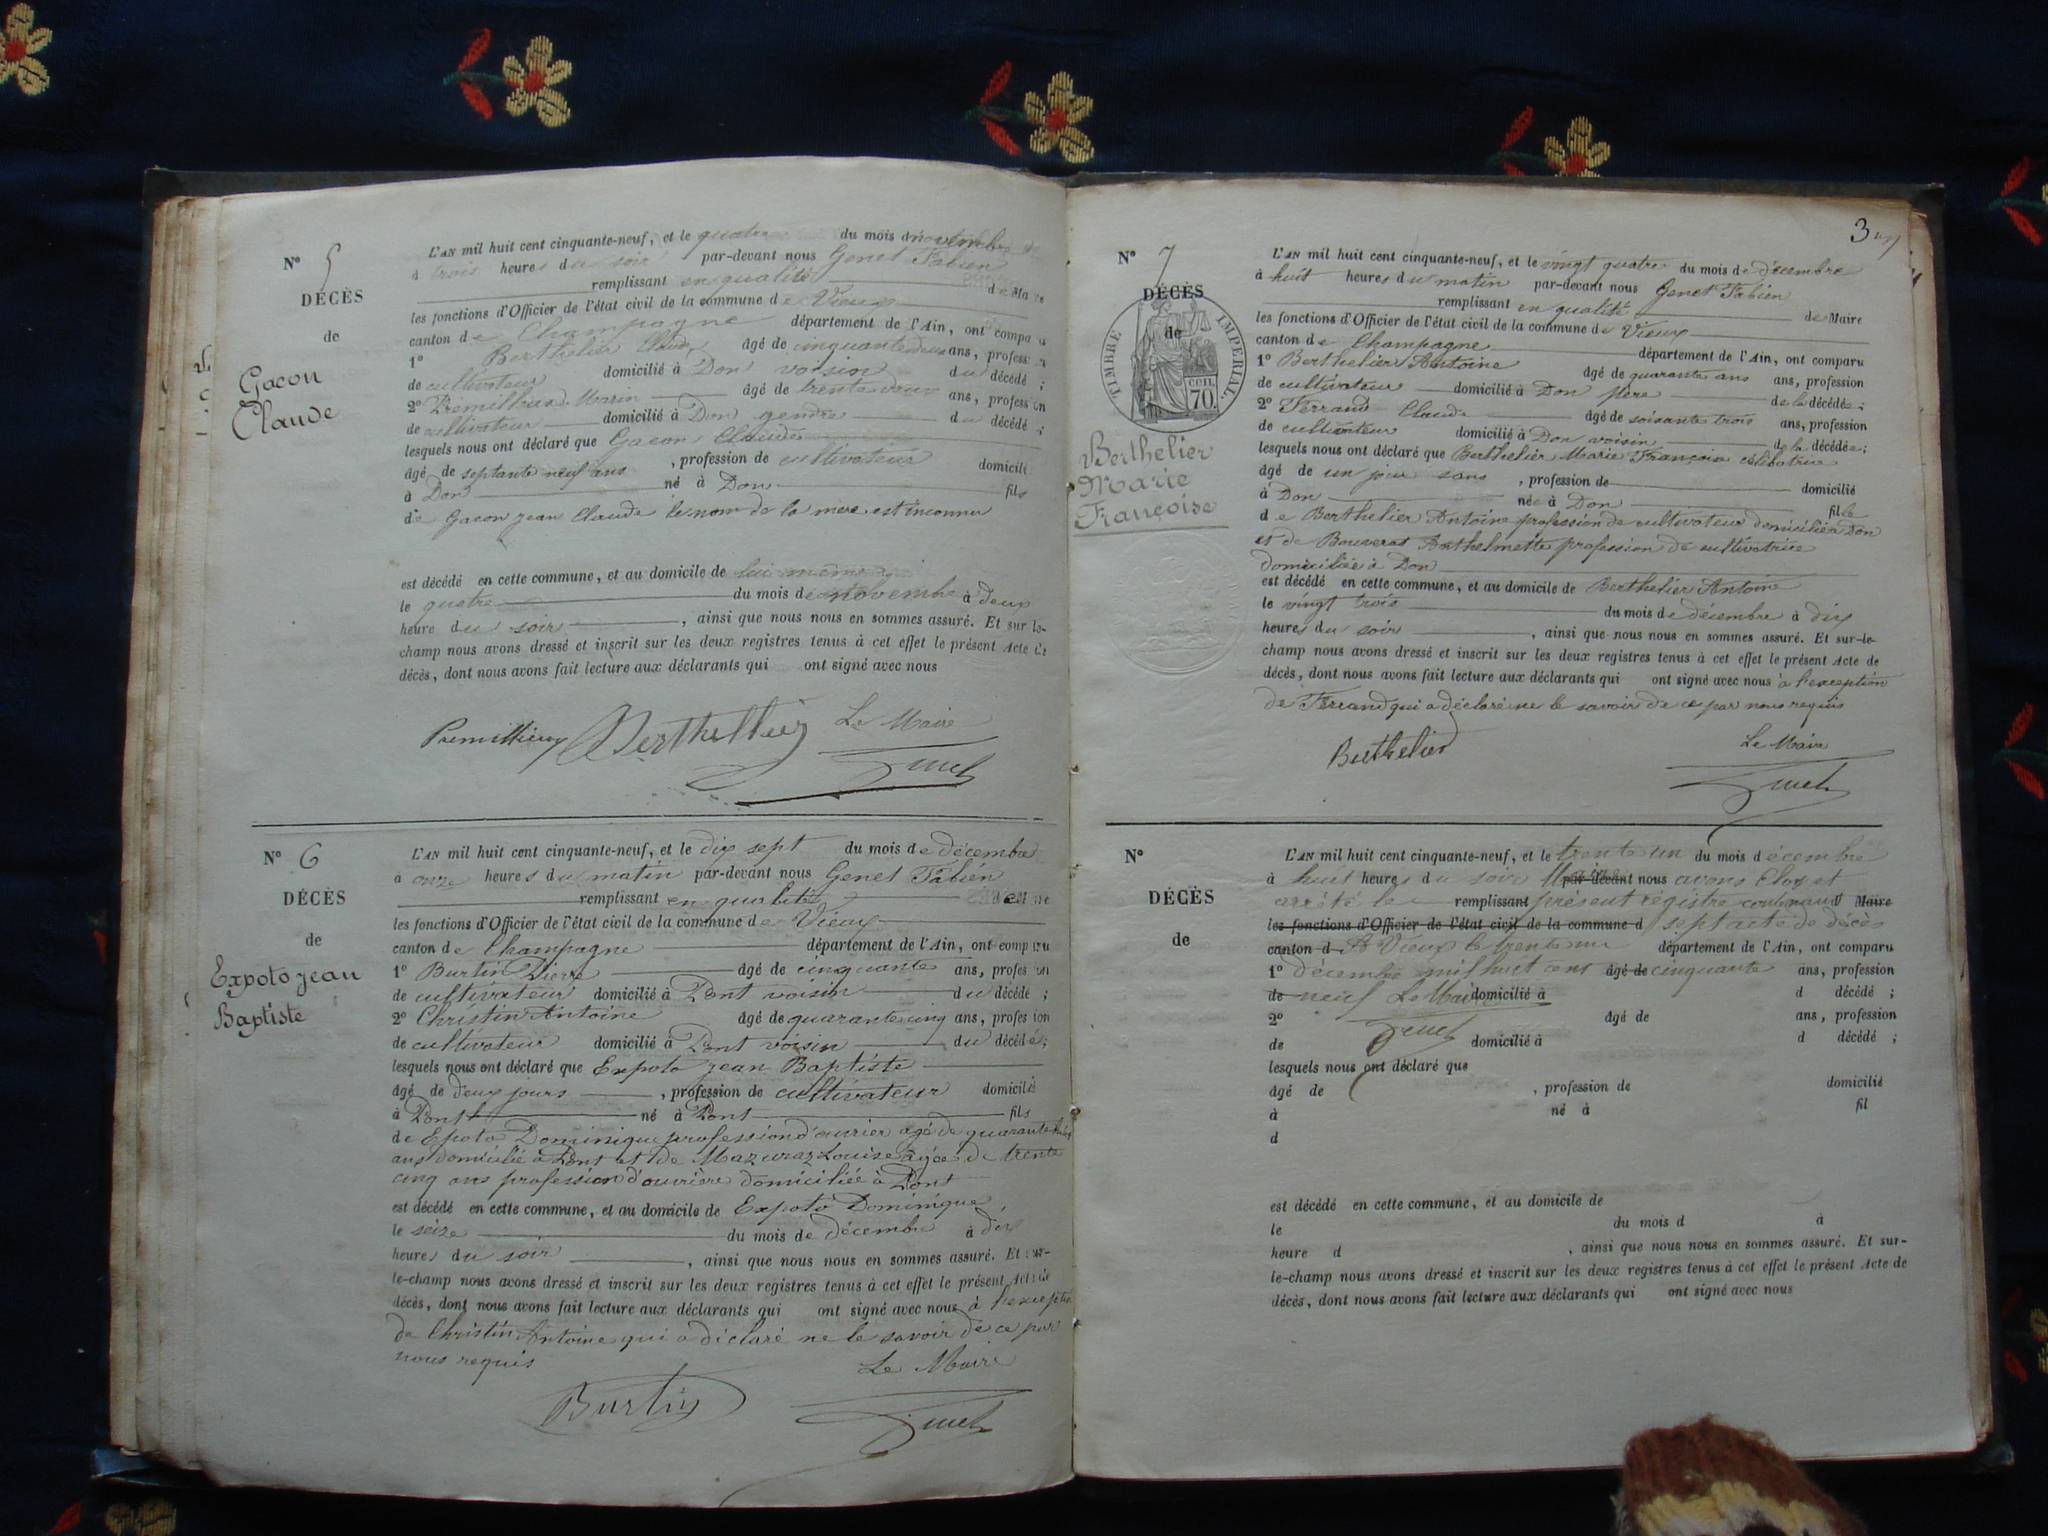 N° 5
DÉCÈS
de
Gacon
Claude
L'AN mil huit cent cinquante-neuf, et le quatre du mois de novembre
à trois heures du soir par-devant nous Genet Fabien
remplissant en qualité de Maire
les fonctions d'Officier de l'état civil de la commune de Vieux
canton de Champagne département de l'Ain, ont comparu
1° Berthelier Claude âgé de cinquante deux ans, profession
de cultivateur domicilié à Don voisin du décédé ;
2° Prémillieux Marin âgé de trente ans, profession
de cultivateur domicilié à Don gendre du décédé ;
lesquels nous ont déclaré que Gacon Claude
âgé de septante neuf ans , profession de cultivateur domicilié
à Don né à Don fils
de Gacon jean Claude le nom de la mère est inconnu
est décédé en cette commune, et au domicile de lui même
le quatre du mois de novembre à deux
heure du soir , ainsi que nous nous en sommes assuré. Et sur-le-
champ nous avons dressé et inscrit sur les deux registres tenus à cet effet le présent Acte de
décès, dont nous avons fait lecture aux déclarants qui ont signé avec nous
Premillieux Berthellier Le Maire
Genet
N° 6
DÉCÈS
de
Expoto jean
Baptiste
L'AN mil huit cent cinquante-neuf, et le dix sept du mois de décembre
à onze heures du matin par-devant nous Genet Fabien
remplissant en qualité de Maire
les fonctions d'Officier de l'état civil de la commune de Vieux
canton de Champagne département de l'Ain, ont comparu
1° Burtin Pierre âgé de cinquante ans, profession
de cultivateur domicilié à Pont voisin du décédé ;
2° Christin Antoine âgé de quarante cinq ans, profession
de cultivateur domicilié à Pont voisin du décédé ;
lesquels nous ont déclaré que Expoto jean Baptiste
âgé de deux jours , profession de cultivateur domicilié
à Pont né à Pont fils
de Epoto Dominique profession d'ouvrier agé de quarante huit
ans domicilié à Pont et de Mazuraz Louise âgée de trente
cinq ans profession d'ouvrière domiciliée à Pont
est décédé en cette commune, et au domicile de Expoto Dominique
le seize du mois de décembre à dix
heures du soir , ainsi que nous nous en sommes assuré. Et sur-
le-champ nous avons dressé et inscrit sur les deux registres tenus à cet effet le présent Acte de
décès, dont nous avons fait lecture aux déclarants qui ont signé avec nous à l'exception
de Christin Antoine qui a déclaré ne le savoir de ce par
nous requis
Le Maire
Burtin Genet
3
N° 7
DÉCÈS
de
TIMBRE IMPERIAL
70 cen.
Berthelier
Marie
Françoise
L'AN mil huit cent cinquante-neuf, et le vingt quatre du mois de décembre
à huit heures du matin par-devant nous Genet Fabien
remplissant en qualité de Maire
les fonctions d'Officier de l'état civil de la commune de Vieux
canton de Champagne département de l'Ain, ont comparu
1° Berthelier Antoine âgé de quarante ans ans, profession
de cultivateur domicilié à Don père de la décédée ;
2° Ferrand Claude âgé de soixante trois ans, profession
de cultivateur domicilié à Don voisin de la décédée ;
lesquels nous ont déclaré que Berthelier Marie Françoise célibatrice
âgé de un jour sans , profession de domicilié
à Don née à Don fille
de Berthelier Antoine profession de cultivateur domicilié à Don
et de Bouverat Anthelmette profession de cultivatrice
domiciliée à Don
est décédé en cette commune, et au domicile de Berthelier Antoine
le vingt trois du mois de décembre à dix
heures du soir , ainsi que nous nous en sommes assuré. Et sur-le-
champ nous avons dressé et inscrit sur les deux registres tenus à cet effet le présent Acte de
décès, dont nous avons fait lecture aux déclarants qui ont signé avec nous à l'exception
de Ferrand qui a déclaré ne le savoir de ce par nous requis
Berthelier Le Maire
Genet
N°
DÉCÈS
de
L'AN mil huit cent cinquante-neuf, et le trente un du mois décembre
à huit heures du soir par-devant nous avons Clos et
arrêté le remplissant présent registre contenant Maire
les fonctions d'Officier de l'état civil de la commune d sept acte de décès
canton d A Vieux le trente un département de l'Ain, ont comparu
1° décembre mil huit cent âgé de cinquante ans, profession
de neuf Le Maire domicilié à d décédé ;
2° Genet âgé de ans, profession
de domicilié à d décédé ;
lesquels nous ont déclaré que
âgé de , profession de domicilié
à né à fil
d
est décédé en cette commune, et au domicile de
le du mois d à
heure d , ainsi que nous nous en sommes assuré. Et sur-
le-champ nous avons dressé et inscrit sur les deux registres tenus à cet effet le présent Acte de
décès, dont nous avons fait lecture aux déclarants qui ont signé avec nous